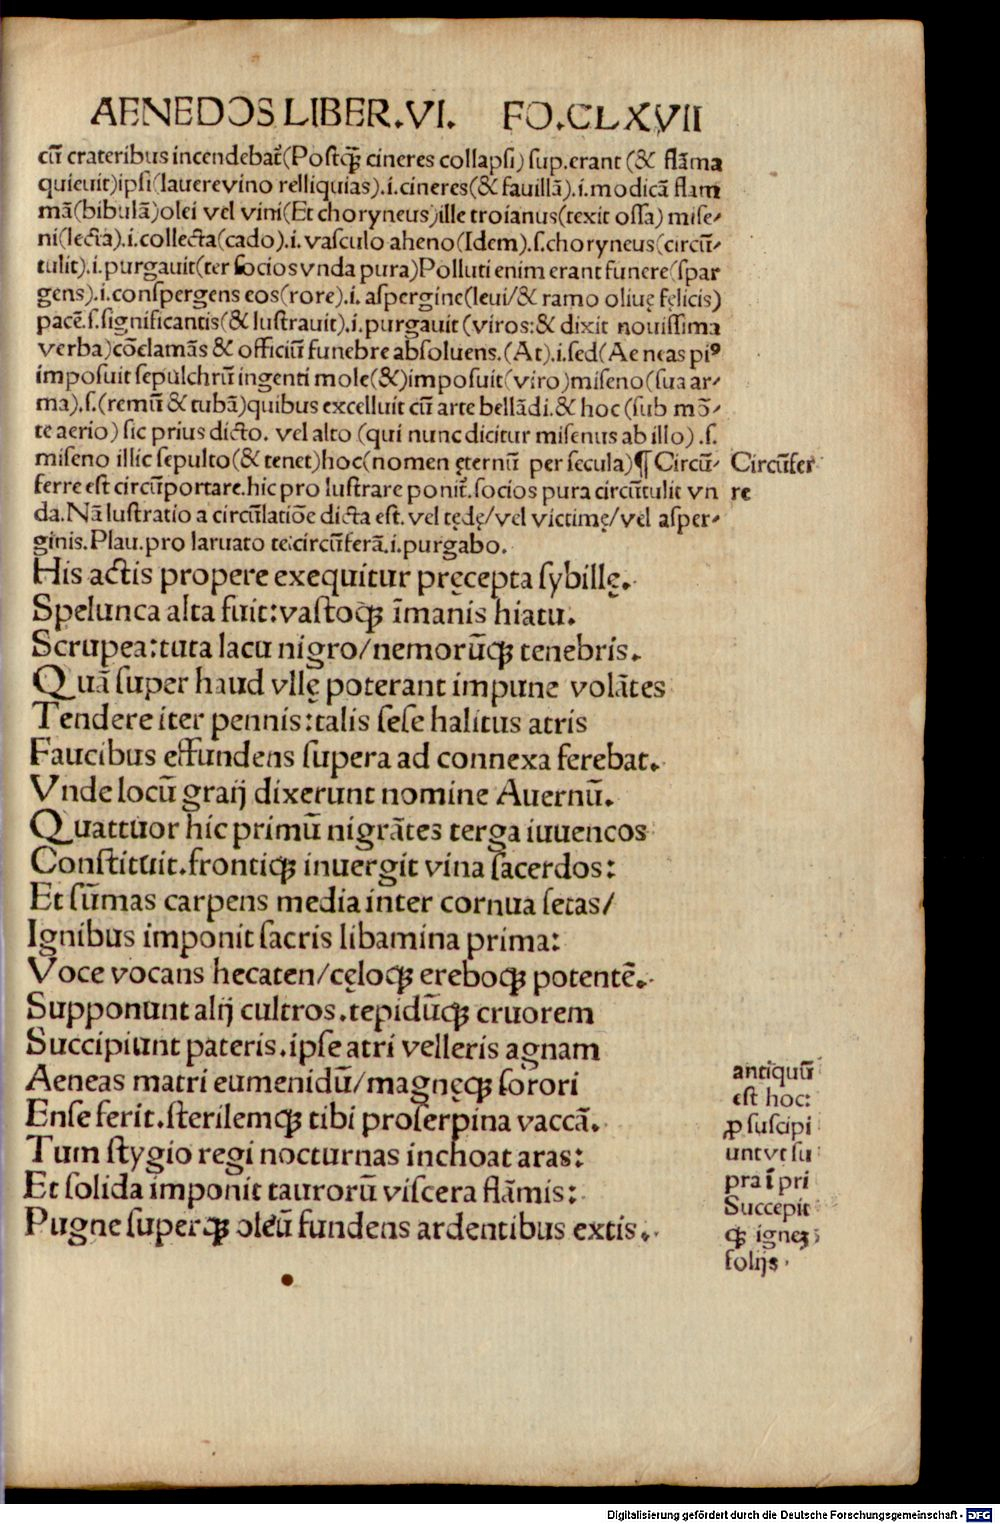 AENEDOS LIBER.VI. FO.CLXVII
cū crateribus incendebat̄(Postꝙ̄ cineres collapsi) sup.erant (& flāma
quieuit)ipsi(lauere vino relliquias).i.cineres(& fauillā).i.modicā flam
mā(bibulā)olei vel vini(Et choryneus)ille troianus(texit ossa) mise-
ni(lecta).i.collecta(cado).i.vasculo aheno(Idem).s.choryneus(circū-
tulit).i.purgauit(ter socios vnda pura)Polluti enim erant funere(spar
gens).i.conspergens eos(rore).i.aspergine(leui/& ramo oliuę fęlicis)
pacē.s.significantis(& lustrauit).i.purgauit(viros:& dixit nouissima
verba)cōclamās & officiū funebre absoluens.(At).i.sed(Aeneas piꝰ
imposuit sepulchrū ingenti mole(&)imposuit(viro)miseno(sua ar-
ma).s.(remū & tubā)quibus excelluit cū arte bellādi.& hoc (sub mō-
te aerio) sic prius dicto. vel alto (qui nunc dicitur misenus ab illo) .s.
miseno illic sepulto(& tenet)hoc(nomen ęternū per secula)¶ Circū-
Circūfer
ferre est circūportare.hic pro lustrare ponit̄.socios pura circūtulit vn
re
da.Nā lustratio a circūlatiōe dicta est. vel tędę/vel victimę/vel asper-
ginis.Plau.pro laruato te:circūferā.i.purgabo.
His actis propere exequitur pręcepta sybillę.
Spelunca alta fuit:vastoqꝫ īmanis hiatu.
Scrupea:tuta lacu nigro/nemorūqꝫ tenebris.
Quā super haud vllę poterant impune volātes
Tendere iter pennis:talis sese halitus atris
Faucibus effundens supera ad connexa ferebat.
Vnde locū graij dixerunt nomine Auernū.
Quattuor hic primū nigrātes terga iuuencos
Constituit.frontiqꝫ inuergit vina sacerdos:
Et sūmas carpens media inter cornua setas/
Ignibus imponit sacris libamina prima:
Voce vocans hecaten/cęloqꝫ ereboqꝫ potentē.
Supponunt alij cultros.tepidūqꝫ cruorem
Succipiunt pateris.ipse atri velleris agnam
Aeneas matri eumenidū/magnęqꝫ sorori
Ense ferit.sterilemqꝫ tibi proserpina vaccā.
Tum stygio regi nocturnas inchoat aras:
Et solida imponit taurorū viscera flāmis:
Pugne superqꝫ oleū fundens ardentibus extis.
antiquū
est hoc:
ꝓ suscipi
unt vt su
pra ī pri
Succepit
qꝫ igneꝫ
folijs
Digitalisierung gefördert durch die Deutsche Forschungsgemeinschaft - DFG